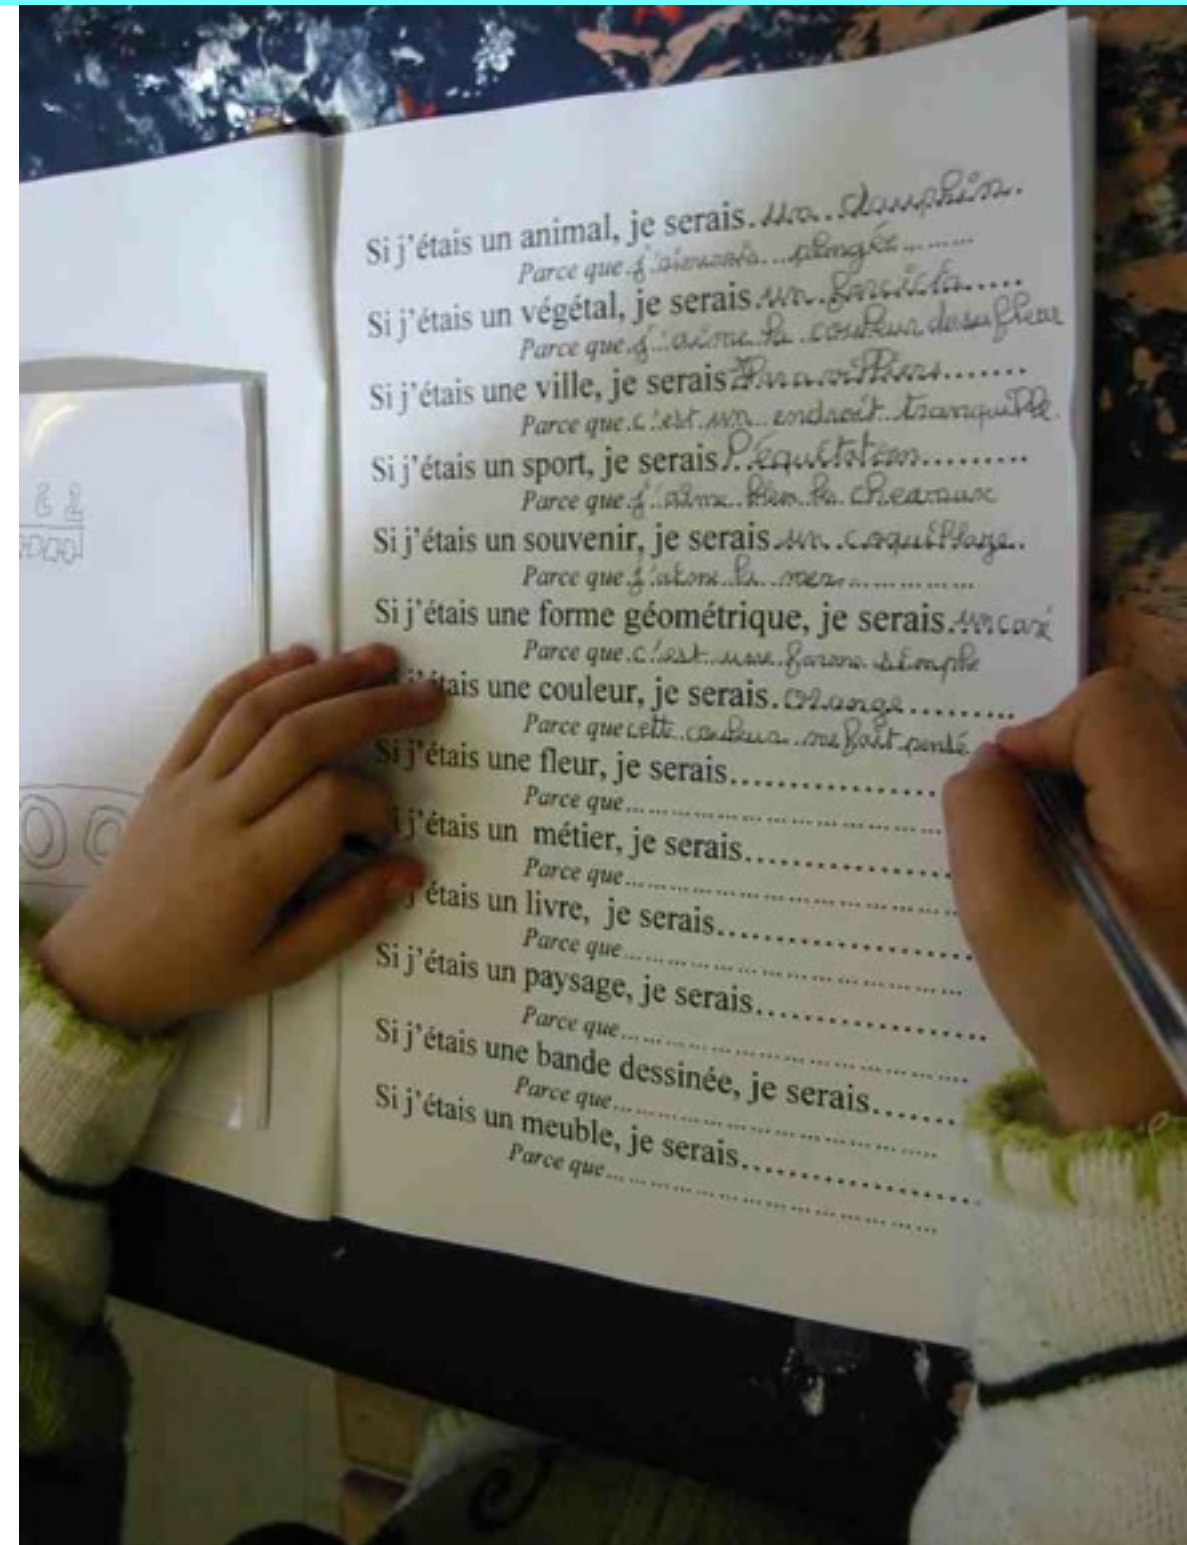 Si j'étais un animal, je serais un dauphin.
Parce que j'aimerais plongée
Si j'étais un végétal, je serais un
Parce que j'aime la couleur de su fleur
Si j'étais une ville, je serais
Parce que c'est un endroit tranquille.
Si j'étais un sport, je serais l'équitation
Parce que j'aime bien les
Si j'étais un souvenir, je serais un coquillage.
Parce que j'aime la mer
Si j'étais une forme géométrique, je serais un caré
Parce que c'est une forme simple
j'étais une couleur, je serais orange
Parce que cette couleur me fait pensé
Si j'étais une fleur, je serais
Parce que
j'étais un métier, je serais
Parce que
j'étais un livre, je serais
Parce que
Si j'étais un paysage, je serais
Parce que
Si j'étais une bande dessinée, je serais
Parce que
Si j'étais un meuble, je serais
Parce que